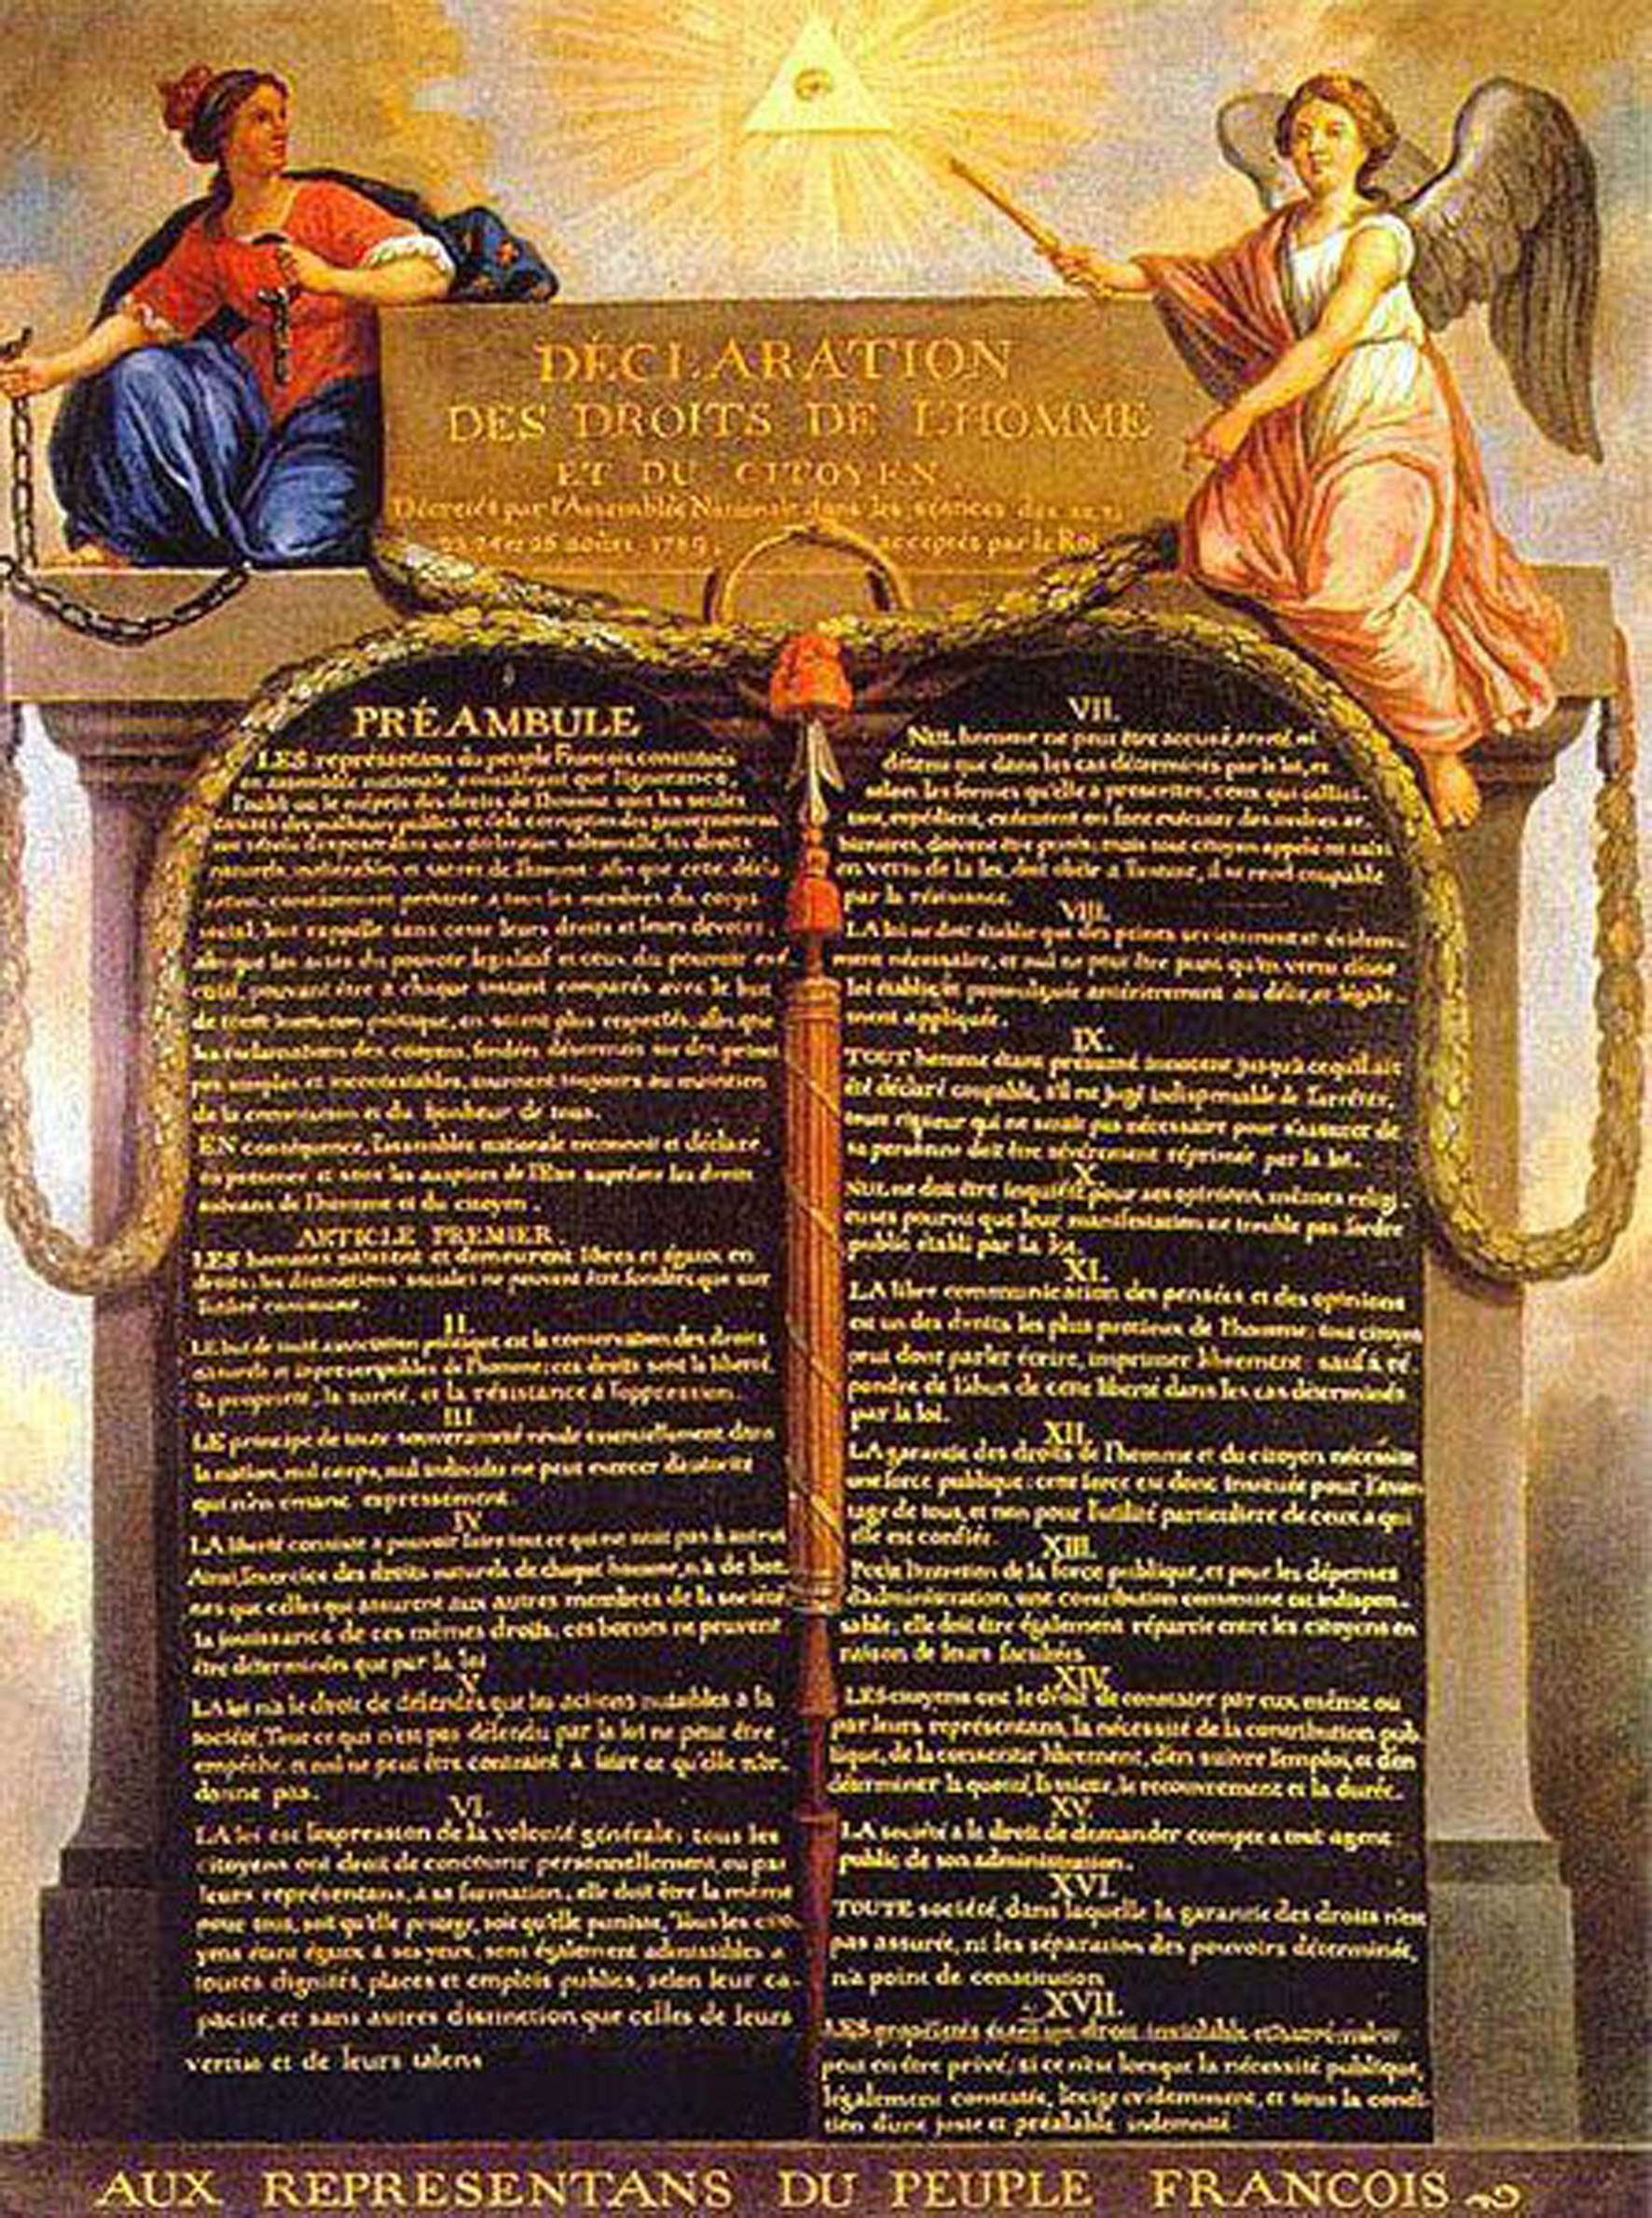 DÉCLARATION
DES DROITS DE L'HOMME
ET DU CITOYEN
Décretés par l'Assemblée Nationale dans les séances des 20, 21
23, 24 et 26 août 1789, acceptés par le Roi
PRÉAMBULE
LES représentans du peuple François, constitués
en assemblée nationale, considérant que l'ignorance,
l'oubli ou le mépris des droits de l'homme sont les seules
causes des malheurs publics et de la corruption des gouvernemens
ont résolu d'exposer dans une déclaration solemnelle, les droits
naturels, inaliénables et sacrés de l'homme; afin que cette décla
ration, constamment présente a tous les membres du corps
social, leur rappelle sans cesse leurs droits et leurs devoirs;
afin que les actes du pouvoir législatif et ceux du pouvoir exé
cutif, pouvant être à chaque instant comparés avec le but
de toute institution politique, en soient plus respectés; afin que
les réclamations des citoyens, fondées désormais sur des princi
pes simples et incontestables, tournent toujours au maintien
de la constitution et du bonheur de tous.
EN conséquence, l'assemblée nationale reconnoit et déclare,
en présence et sous les auspices de l'Etre suprême les droits
suivans de l'homme et du citoyen.
ARTICLE PREMIER.
LES hommes naissent et demeurent libres et égaux en
droits; les distinctions sociales ne peuvent être fondées que sur
l'utilité commune.
II.
LE but de toute association politique est la conservation des droits
naturels et imprescriptibles de l'homme; ces droits sont la liberté,
la propriété, la sureté, et la résistance à l'oppression.
III
LE principe de toute souveraineté réside essentiellement dans
la nation, nul corps, nul individu ne peut exercer d'autorité
qui n'en emane expressément.
IV
LA liberté consiste a pouvoir faire tout ce qui ne nuit pas à autrui
Ainsi, l'exercice des droits naturels de chaque homme, n'a de bor-
nes que celles qui assurent aux autres membres de la société
la jouissance de ces mêmes droits; ces bornes ne peuvent
être déterminées que par la loi
V
LA loi n'a le droit de défendre que les actions nuisibles à la
société. Tout ce qui n'est pas défendu par la loi ne peut être
empêché, et nul ne peut être contraint à faire ce qu'elle n'or-
donne pas.
VI.
LA loi est l'expression de la volonté générale; tous les
citoyens ont droit de concourir personnellement, ou par
leurs représentans, à sa formation; elle doit être la même
pour tous, soit qu'elle protege, soit qu'elle punisse, Tous les cito
yens étant égaux à ses yeux, sont également admissibles a
toutes dignités, places et emplois publics, selon leur ca-
pacité, et sans autres distinction que celles de leurs
vertus et de leurs talens
VII.
NUL homme ne peut être accusé, arreté, ni
détenu que dans les cas déterminés par la loi, et
selon les formes qu'elle a prescrites, ceux qui sollici-
tent, expédient, exécutent ou font exécuter des ordres ar
bitraires, doivent être punis; mais tout citoyen appelé ou saisi
en vertu de la loi, doit obéir a l'instant, il se rend coupable
par la résistance.
VIII.
LA loi ne doit établir que des peines strictement et évidem
ment nécessaire, et nul ne peut être puni qu'en vertu d'une
loi établie, et promulguée antérierement au délit, et légale-
ment appliquée.
IX.
TOUT homme étant présumé innocent jusqu'à ce qu'il ait
été déclaré coupable, s'il est jugé indispensable de l'arrêter,
toute rigueur qui ne serait pas nécessaire pour s'assurer de
sa personne doit être sévèrement réprimée par la loi.
X.
NUL ne doit être inquiété pour ses opinions, mêmes religi-
euses pourvu que leur manifestation ne trouble pas l'ordre
public établi par la loi.
XI.
LA libre communication des pensées et des opinions
est un des droits les plus precieux de l'homme: tout citoyen
peut dont parler écrire, imprimer librement: sauf à ré
pondre de l'abus de cette liberté dans les cas déterminés
par la loi.
XII.
LA garantie des droits de l'homme et du citoyen nécessite
une force publique: cette force est donc instituée pour l'avan
tage de tous, et non pour l'utilité particuliere de ceux a qui
elle est confiée.
XIII.
Pour l'entretien de la force publique, et pour les dépenses
d'administration, une contribution commune est indispen-
sable; elle doit être également répartie entre les citoyens en
raison de leurs facultées
XIV.
LES citoyens ont le droit de constater par eux même ou
par leurs représentans, la nécessité de la contribution pub-
lique, de la consentir librement, d'en suivre l'emploi, et d'en
déterminer la quotité, l'assiete, le recouvrement et la durée.
XV.
LA société a le droit de demander compte a tout agent
public de son administration.
XVI.
TOUTE société, dans laquelle la garantie des droits n'est
pas assurée, ni les séparation des pouvoirs déterminée,
n'a point de constitution
XVII.
LES propriétés étant un droit inviolable et sacré, nul ne
peut en être privé, si ce n'est lorsque la nécessité publique,
légalement constatée, l'exige evidemment, et sous la condi-
tion d'une juste et préalable indemnité.
AUX REPRESENTANS DU PEUPLE FRANCOIS